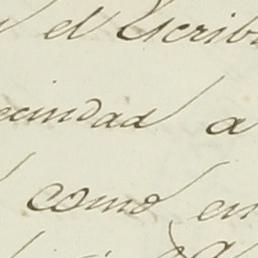 y el Escrib
ecindad a
como en